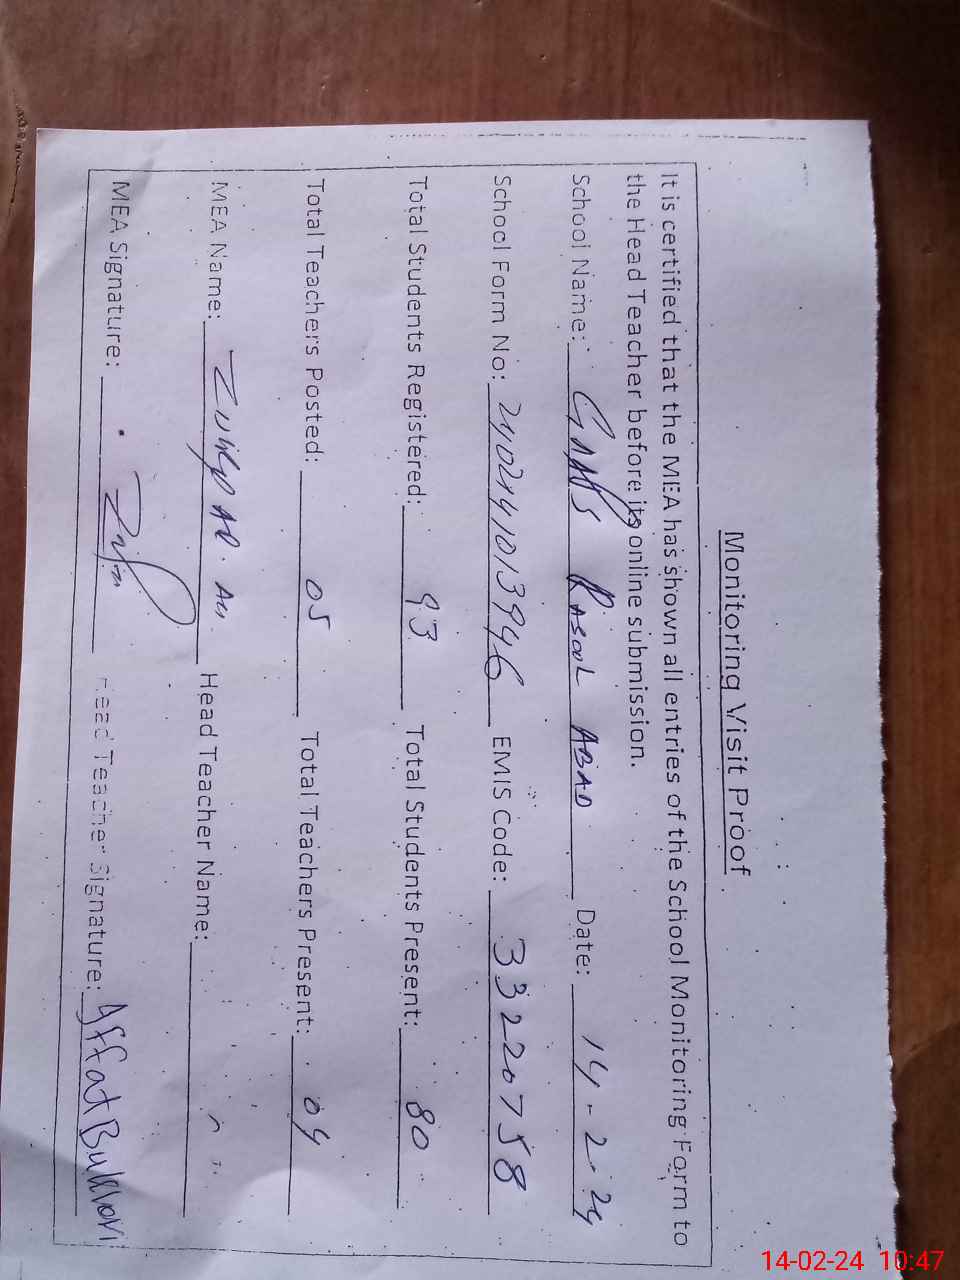 Monitoring Visit Proof
It is certified that the MEA has shown all entries of the School Monitoring Form to
the Head Teacher before its online submission.
School Name: RASOOL ABAD Date: 14-2-24
School Form No: 2402141013946 EMIS Code: 33220758
Total Students Registered: 93 Total Students Present: 80
Total Teachers Posted: 05 Total Teachers Present: 04
MEA Name: Head Teacher Name:
MEA Signature: Head Teacher Signature: Iffat Bukhari
14-02-24 10:47